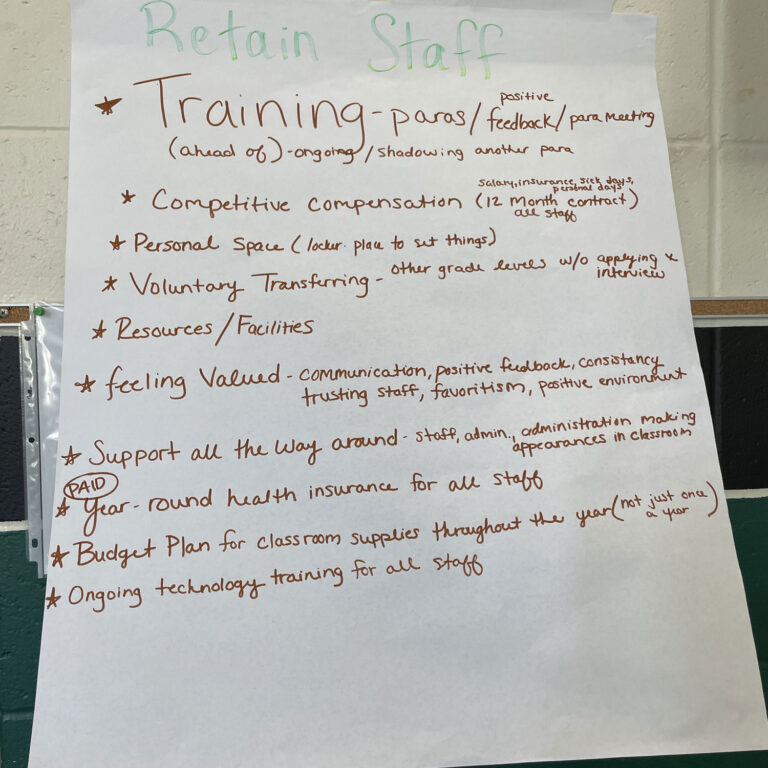 Retain Staff
★ Training - paras / positive feedback / para meeting
(ahead of) - ongoing / shadowing another para
salary, insurance, sick days,
personal days
★ Competitive compensation (12 month contract)
all staff
★ Personal Space (locker. place to set things)
★ Voluntary Transferring - other grade levels w/o applying x
interview
★ Resources / Facilities
★ feeling Valued - communication, positive feedback, consistancy
trusting staff, favoritism, positive environment
★ Support all the way around - staff, admin., administration making
appearances in classroom
PAID
★ Year-round health insurance for all staff
★ Budget Plan for classroom supplies throughout the year (not just once
a year)
★ Ongoing technology training for all staff